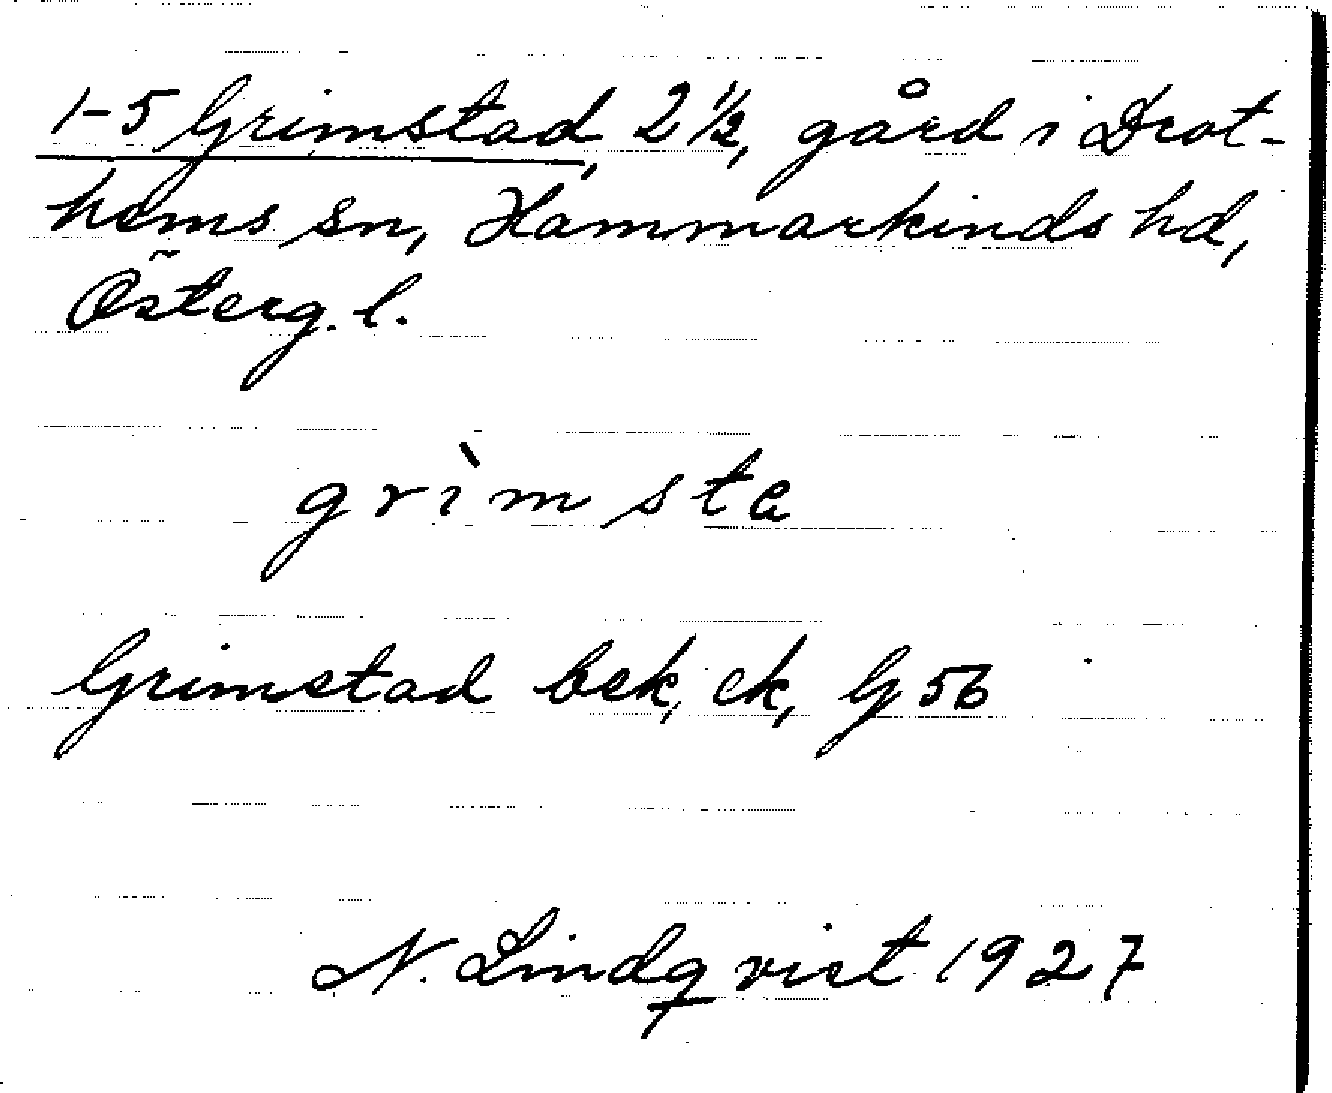 1-5 Grimstad, 2 ½, gård i Drot-
hems sn, Hammarkinds hd,
Österg. l.
grìmsta
Grimstad bek, ek, G 5b
N. Lindqvist 1927